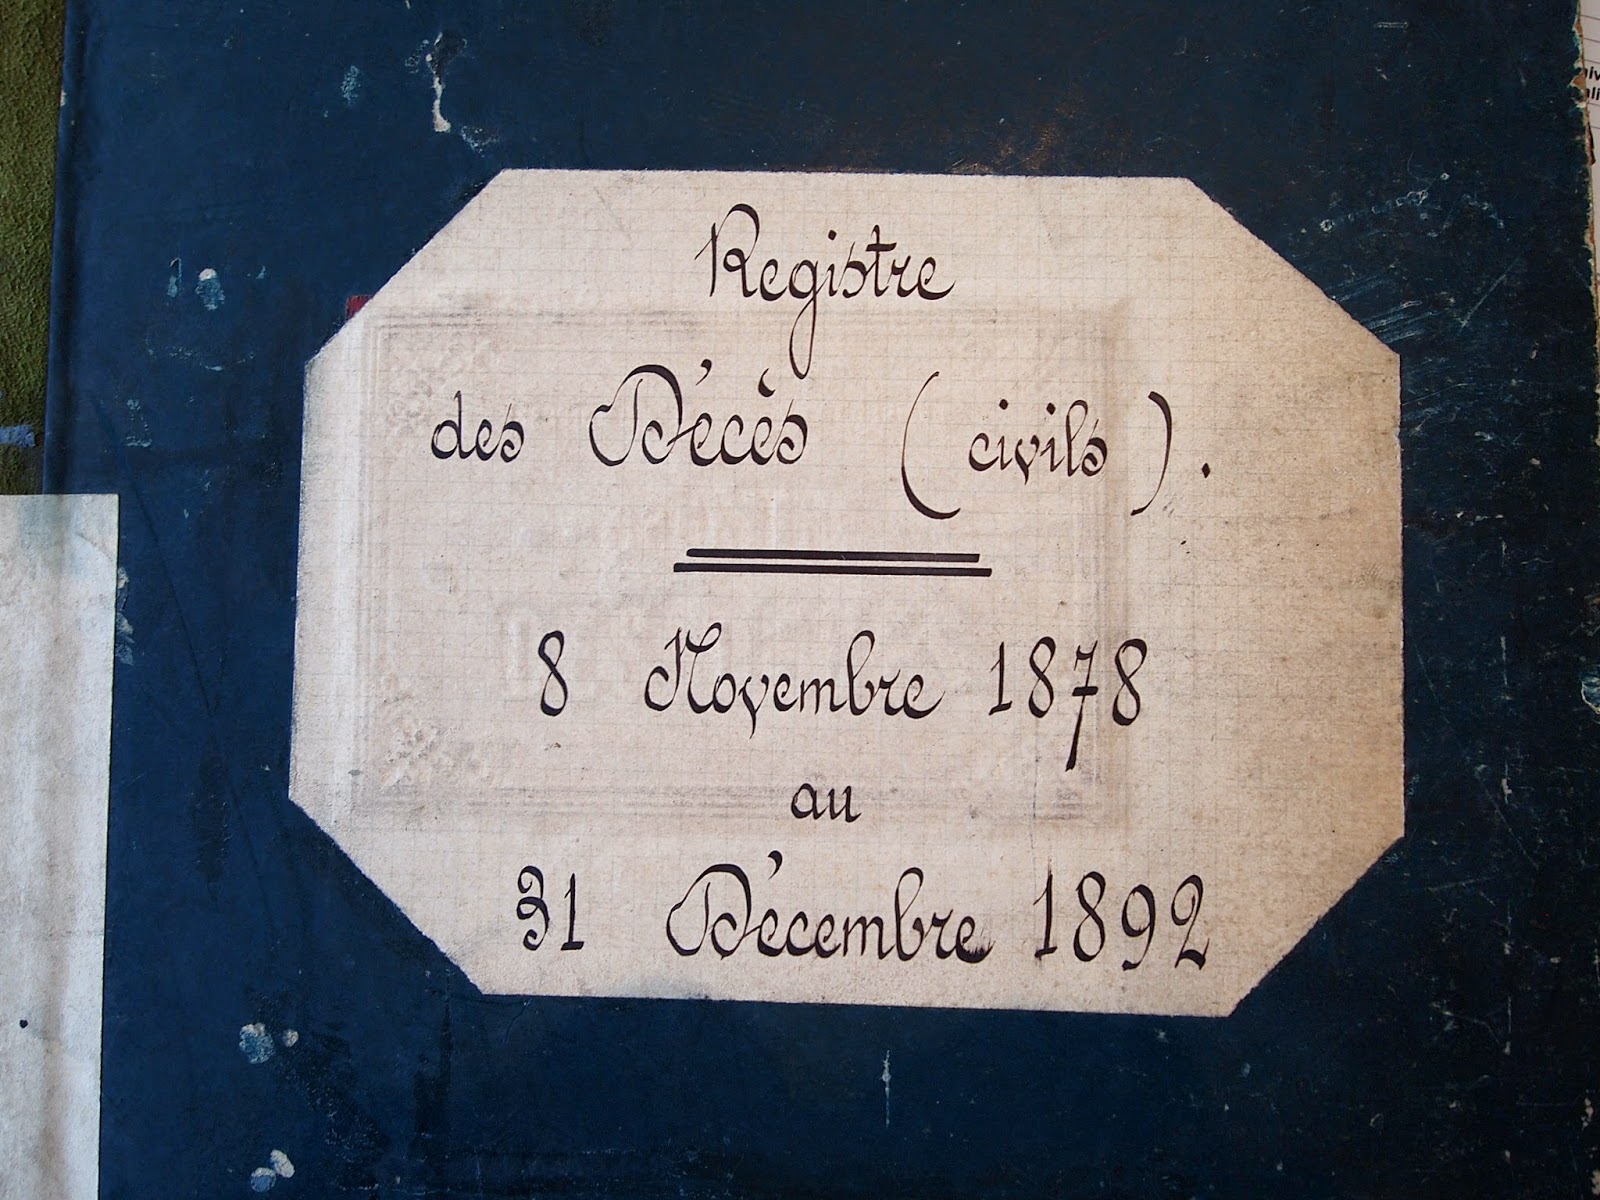 Registre
des Décès (civils).
8 Novembre 1878
au
31 Décembre 1892